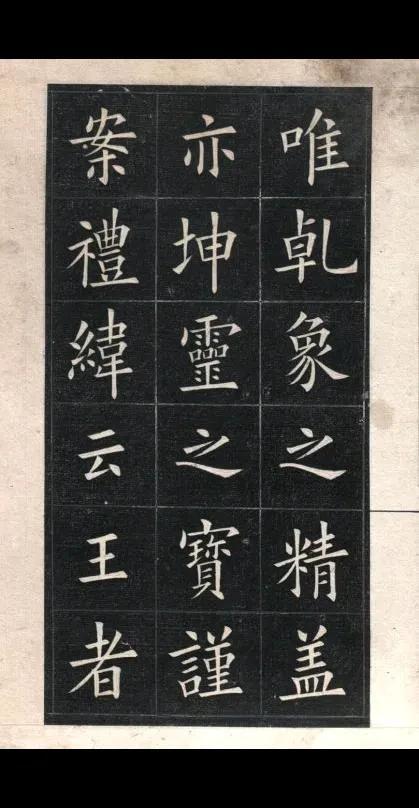 唯乹象之精盖
亦坤靈之寶謹
案禮緯云王者